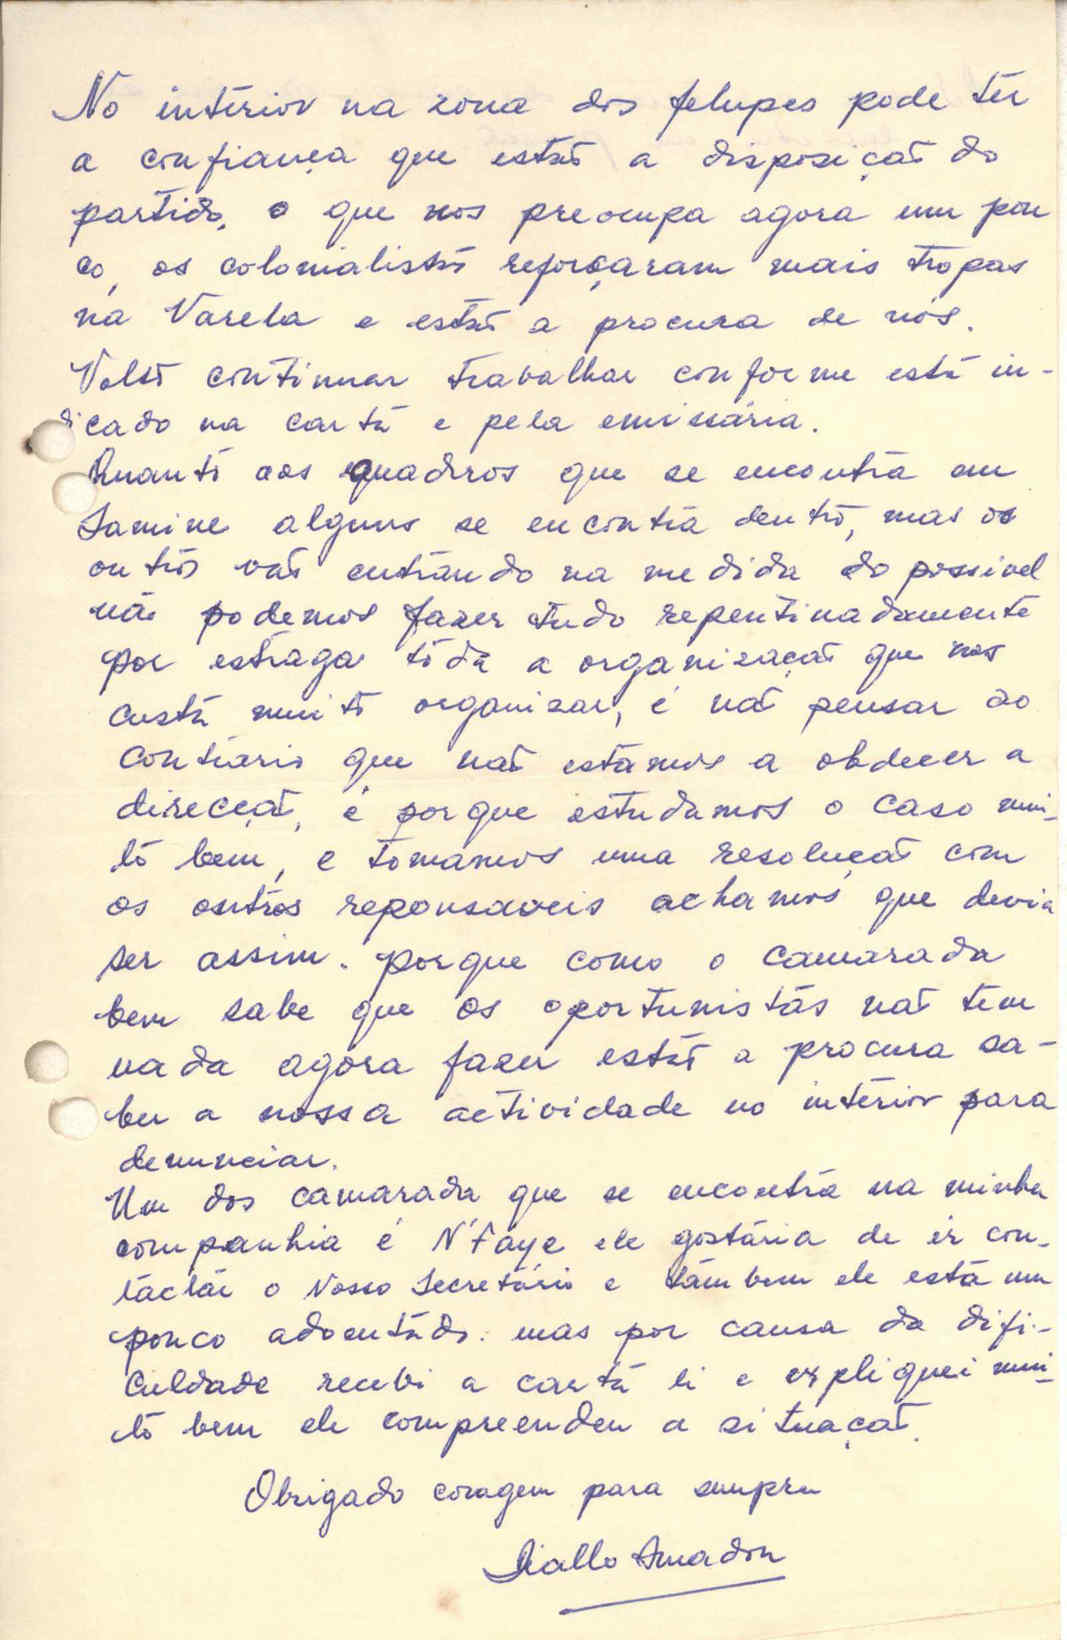 No intérior na zona dos felupes pode têr
a confiança que estão a disposição do
partido, o que nos preocupa agora um pou
co, os colonialistas reforçaram mais tropas
na Varela e estão a procura de nós.
Volto continuar trabalhar conforme está in-
dicado na carta e pela emissária.
Quanto aos quadros que se encontra em
Samine alguns se encontra dentro, mas os
outros vão entrando na medida do possivel
não podemos fazer tudo repentinadamente
por estraga tôda a organização que nos
custa muito organizar, é não pensar ao
contrario que não estamos a obdecer a
direcção, é porque estudamos o caso mui-
to bem, e tomamos uma resolução com
os outros reponsaveis achamos que devia
ser assim. porque como o camarada
bem sabe que os oportunistas não tem
nada agora fazer estão a procura sa-
ber a nossa actividade no intérior para
denunciar.
Um dos camarada que se encontra na minha
companhia é N'Faye ele gostária de ir con-
tactar o Nosso Secretário e tambem ele está um
pouco adoentado. mas por causa da difi-
culdade recebi a carta li e expliquei mui-
to bem ele compreendeu a situação.
Obrigado coragem para sempre
Diallo Amadou